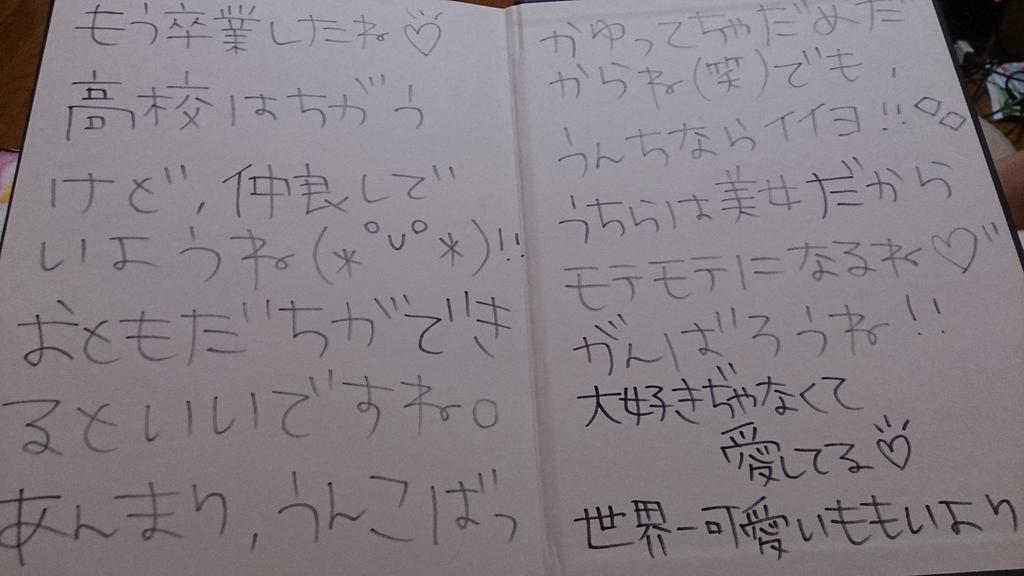 もう卒業したね♡
高校はちがう
けど、仲良しで
いようね(*°∪°*)!!
おともだちができ
るといいですね。
あんまり、うんこばっ
かゆってちゃだめだ
からね(笑)でも、
うんちならイイヨ!!◇◇
うちらは美女だから
モテモテになるね♡
がんばろうね!!
大好きぢゃなくて
愛してる♡
世界一可愛いももいより